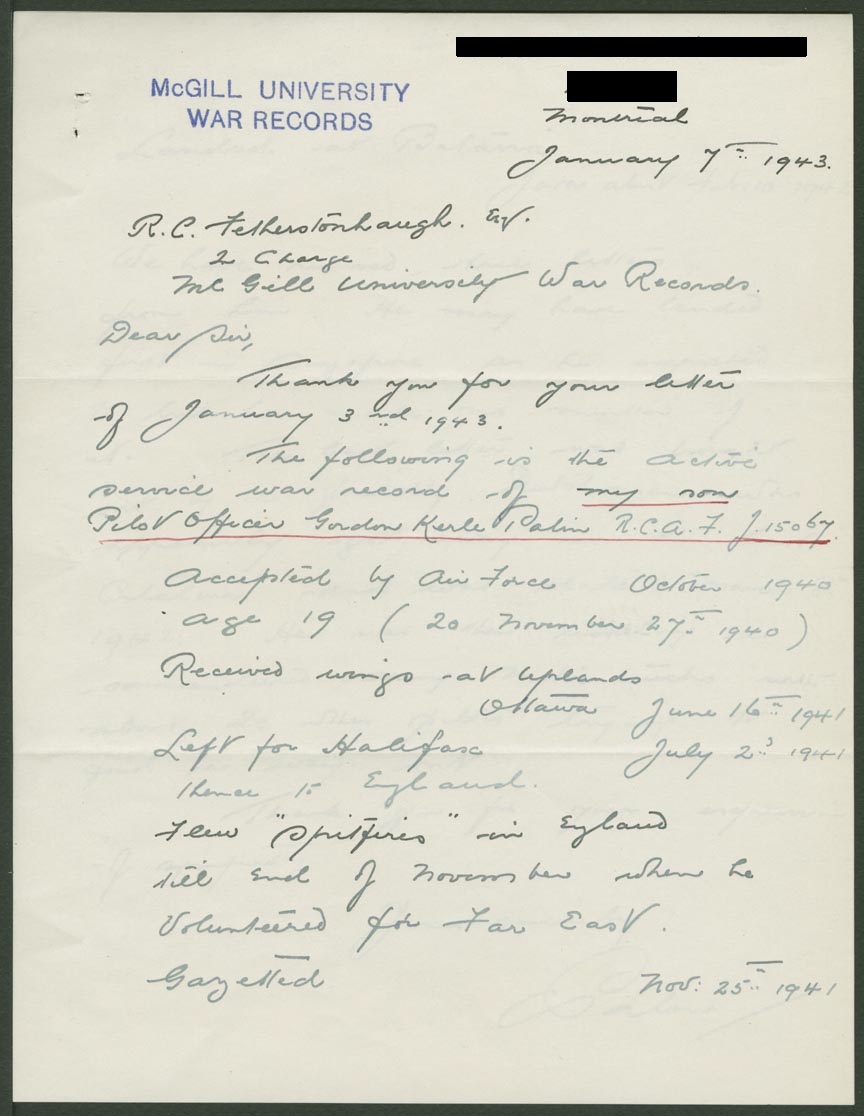 McGILL UNIVERSITY
WAR RECORDS
Montreal
January 7th 1943.
R.C. Fetherstonhaugh. Esq.
2 Charge
McGill University War Records.
Dear Sir,
Thank you for your letter
of January 3rd 1943.
The following is the active
service war record of my son
Pilot Officer Gordon Kerle Palin R.C.A.F. J.15067.
Accepted by Air Force October 1940
age 19 (20 November 27th 1940)
Received wings at Uplands
Ottawa June 16th 1941
Left for Halifax July 2d 1941
thence to England.
Flew "Spitfires" in England
till end of November when he
Volunteered for Far East.
Gazetted Nov: 25th 1941